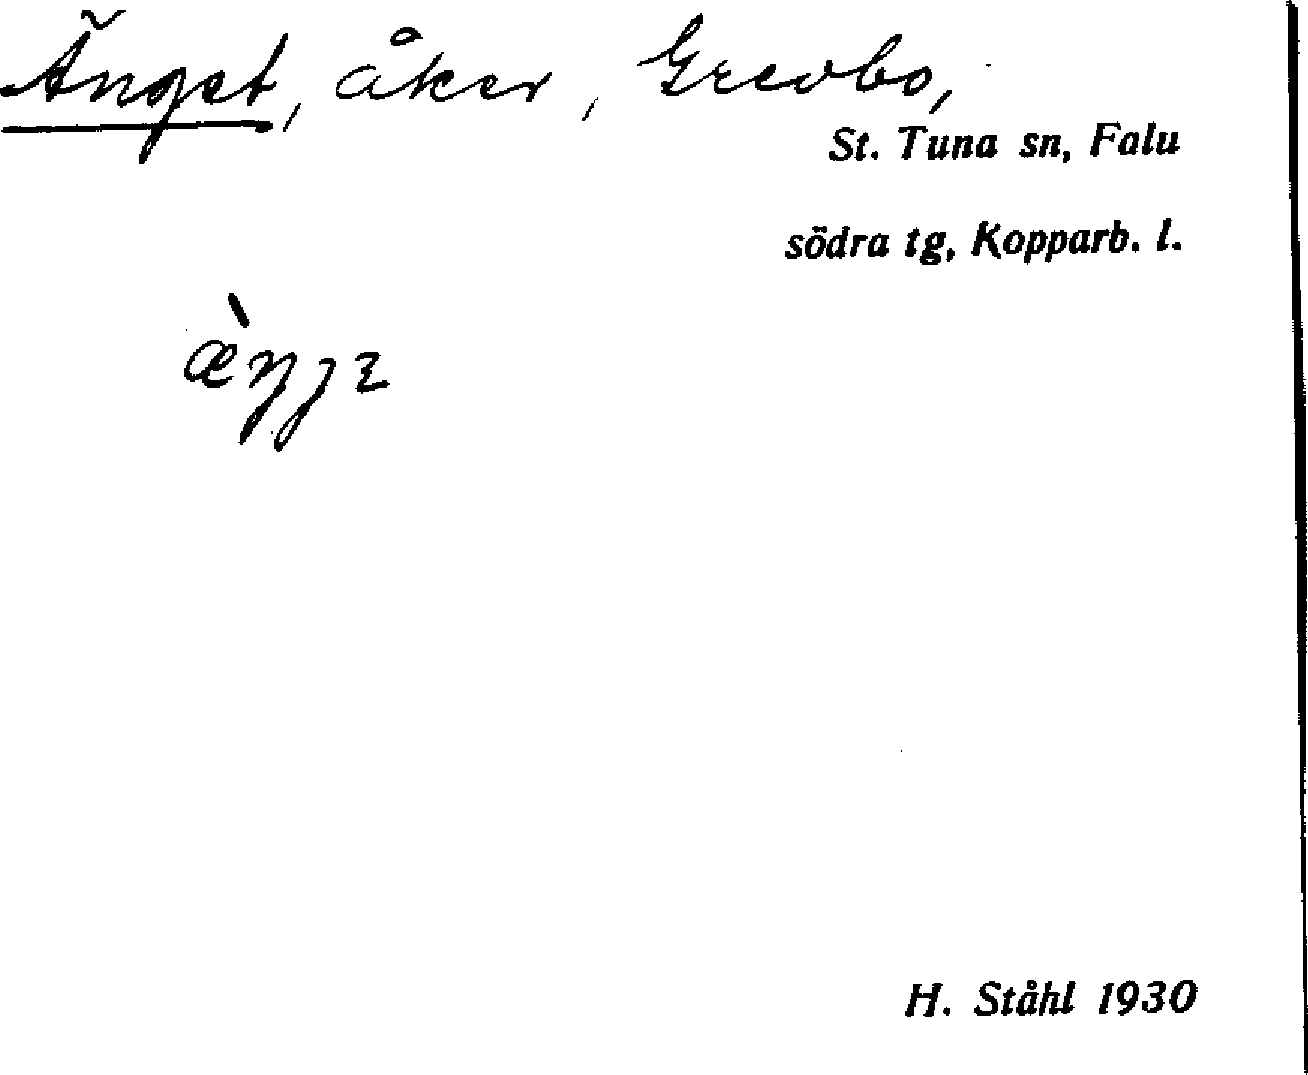 Änget, åker, Grevbo,
St. Tuna sn, Falu
södra tg, Kopparb. l.
æ̀ŋjɛ
H. Ståhl 1930